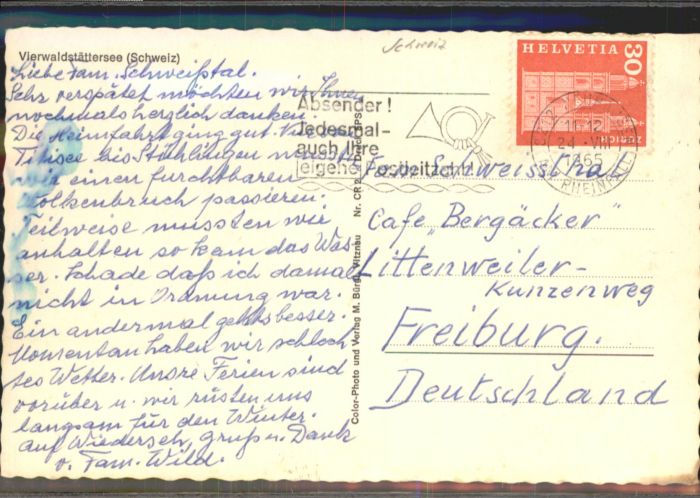 Vierwaldstättersee (Schweiz)
Liebe Fam. Schweißtal.
Sehr verspätet möchten wir Ihnen
nochmals herzlich danken.
Die Heimfahrt ging gut. Von
Titisee bis Stühlingen mussten
wir einen furchtbaren
Wolkenbruch passieren.
Teilweise mussten wir
anhalten so kam das Was-
ser. Schade daß ich damals
nicht in Ordnung war.
Ein andermal gehts besser.
Momentan haben wir schlech-
tes Wetter. Unsre Ferien sind
vorüber u. wir rüsten uns
langsam für den Winter.
auf Wiederseh, gruß u. Dank
v. Fam. Wild.
Color-Photo und Verlag M. Bürgi, Vitznau Nr. CR 2
Schweiz
Absender!
Jedesmal-
auch Ihre
eigene Postleitzahl
HELVETIA 30
ZÜRICH
11-12
24.VIII
1965
RHEINFALL
Fam. Schweissthal
Cafe „Bergäcker"
Littenweiler-
Kunzenweg
Freiburg.
Deutschland